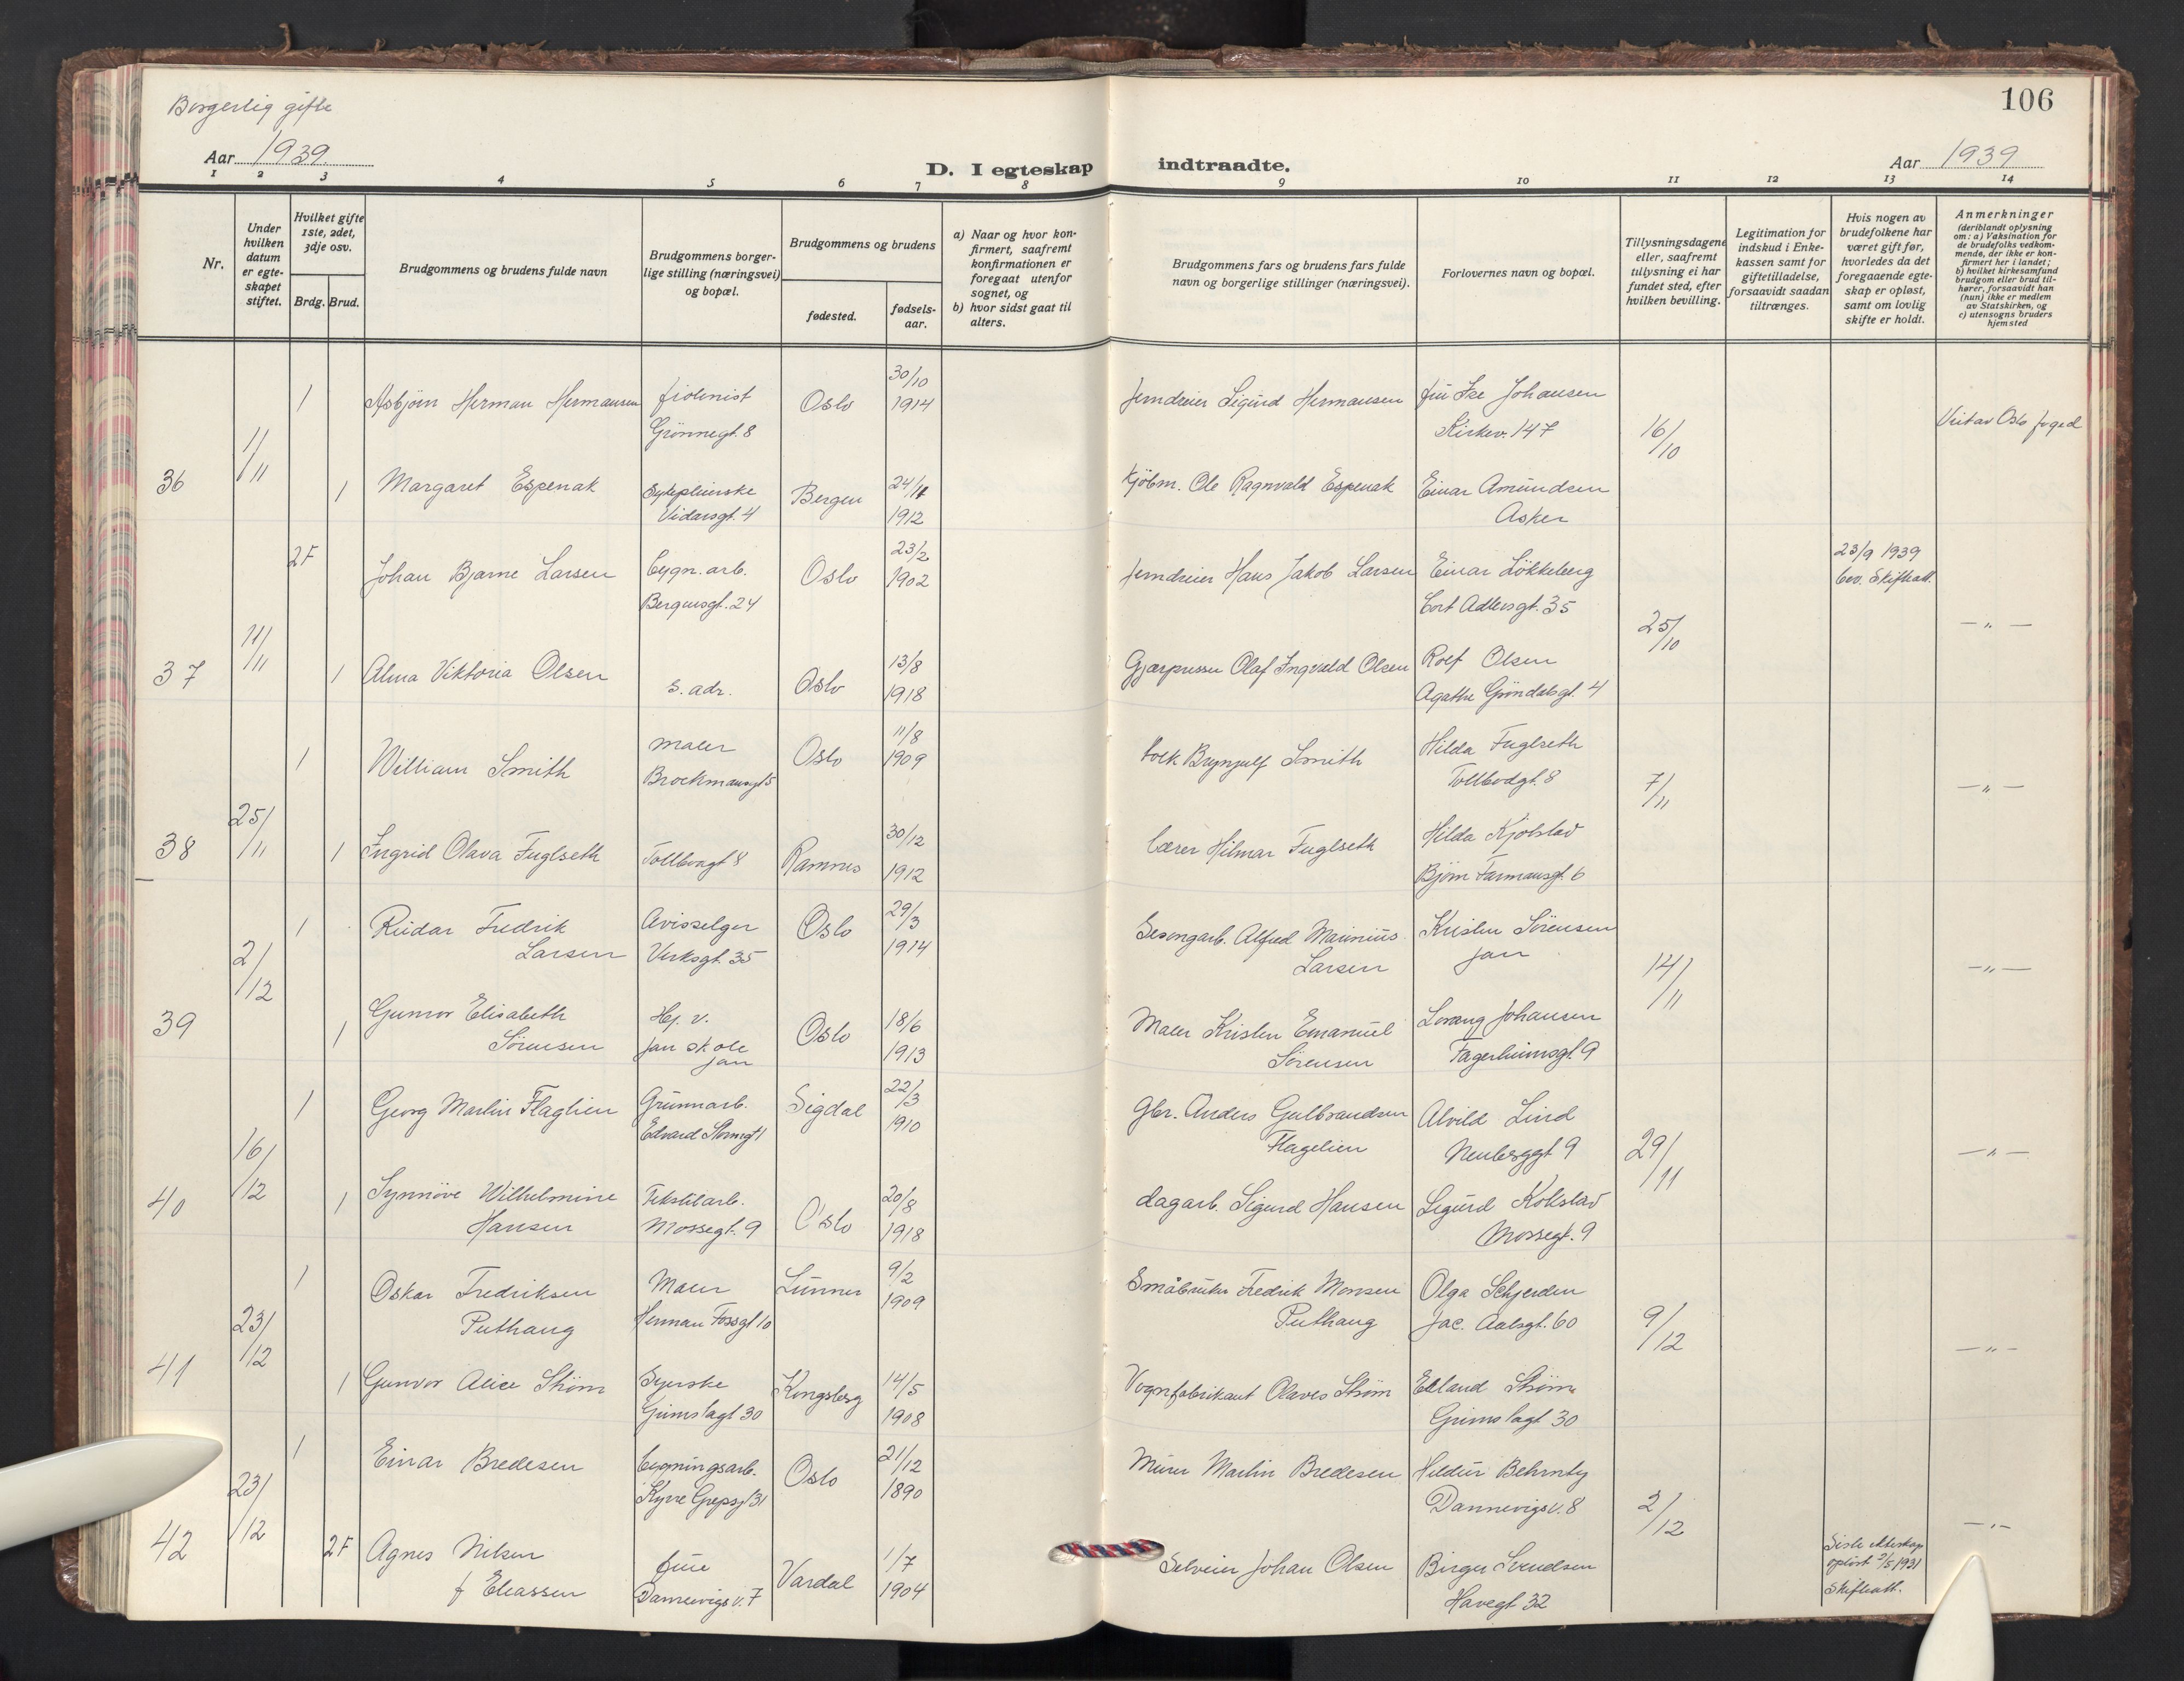 Borgerlig gifte
106
Aar 1939.
D. I egteskap indtraadte.
Aar 1939
1 2 3 4 5 6 7 8 9 10 11 12 13 14
Nr.
Under hvilken datum er egte-skapet stiftet.
Hvilket gifte 1ste, 2det, 3dje osv.
Brdg. Brud.
Brudgommens og brudens fulde navn
Brudgommens borger-lige stilling (næringsvei) og bopæl.
Brudgommens og brudens
fødested.
fødsels-aar.
a) Naar og hvor kon-firmert, saafremt konfirmationen er foregaat utenfor sognet, og
b) hvor sidst gaat til alters.
Brudgommens fars og brudens fars fulde navn og borgerlige stillinger (næringsvei).
Forlovernes navn og bopæl.
Tillysningsdagene eller, saafremt tillysning ei har fundet sted, efter hvilken bevilling.
Legitimation for indskud i Enke-kassen samt for giftetilladelse, forsaavidt saadan tiltrænges.
Hvis nogen av brudefolkene har været gift før, hvorledes da det foregaaende egte-skap er opløst, samt om lovlig skifte er holdt.
Anmerkninger (deriblandt oplysning om: a) Vaksination for de brudefolks vedkom-mende, der ikke er kon-firmert her i landet; b) hvilket kirkesamfund brudgom eller brud til-hører, forsaavidt han (hun) ikke er medlem av Statskirken, og c) utensogns bruders hjemsted
1 Asbjørn Herman Hermansen fiolinist Oslo 30/10 1914 Jerndreier Sigurd Hermansen Johansen
Grønnegt. 8 Kirkev. 147
11/11 16/10 Oslo foged
36 1 Margaret Espenak Sykepleierske Bergen 24/11 1912 Kjøbm. Ole Ragnvald Espenak Einar Amundsen
Vidarsgt. 4 Asker
2F Johan Bjarne Larsen bygn. arb. Oslo 23/2 1902 Jerndreier Hans Jakob Larsen Einar Løkkeberg 23/9 1939
Bergensgt. 24 Cort Adlersgt. 35 bev. Skifteatt.
11/11 25/10 — " —
37 1 Alma Viktoria Olsen s. adr. Oslo 13/8 1918 Olaf Ingvald Olsen Rolf Olsen
Agathe Grøndalsgt. 4
1 William Smith maler Oslo 11/8 1909 Brynjulf Smith Hilda Fuglseth
Brockmannsgt 5 Tollbodgt. 8
25/11 7/11 — " —
38 1 Ingrid Olava Fuglseth Tollbodgt 8 Ramnes 30/12 1912 lærer Hilmar Fuglseth Hilda Kjølstad
Bjørn Farmansgt. 6
1 Reidar Fredrik Larsen Avisselger Oslo 29/3 1914 Sesongarb. Alfred Marinius Larsen Kristen Sørensen
Verksgt. 35 Jar
2/12 14/11 — " —
39 1 Gunvor Elisabeth Sørensen Hj. v. Oslo 18/6 1913 Maler Kristen Emanuel Sørensen Lorang Johansen
Jar skole Jar Fagerheimsgt. 9
1 Georg Martin Flaglien Grunnarb. Sigdal 22/3 1910 Gbr. Anders Gulbrandsen Flagelien Alvild Lind
Edvard Stormsgt 1 Neuberggt 9
16/12 29/11 — " —
40 1 Synnøve Wilhelmine Hansen Tekstilarb. Oslo 20/8 1918 dagarb. Sigurd Hansen Sigurd Kolstad
Mossegt. 9 Mossegt. 9
1 Oskar Fredriksen Puthaug Maler Lunner 9/2 1909 Småbruker Fredrik Monsen Puthaug Olga Schjerden
Herman Fossgt 10 Jac. Aalsgt. 60
23/12 9/12 — " —
41 1 Gunvor Alice Strøm Syerske Kongsberg 14/5 1908 Vognfabrikant Olaves Strøm Erland Strøm
Grimstagt 30 Grimstagt 30
1 Einar Bredesen bygningsarb. Oslo 21/12 1890 Murer Martin Bredesen
Kyrre Grepsgt 31 Dannevigsv. 8
23/12 2/12 — " —
42 2F Agnes Nilsen f Eliassen frue Vardal 1/7 1904 Selveier Johan Olsen Birger Svendsen
Dannevigsv. 7 Havegt 32
Siste ekteskap opløst 1931 Skifteatt.